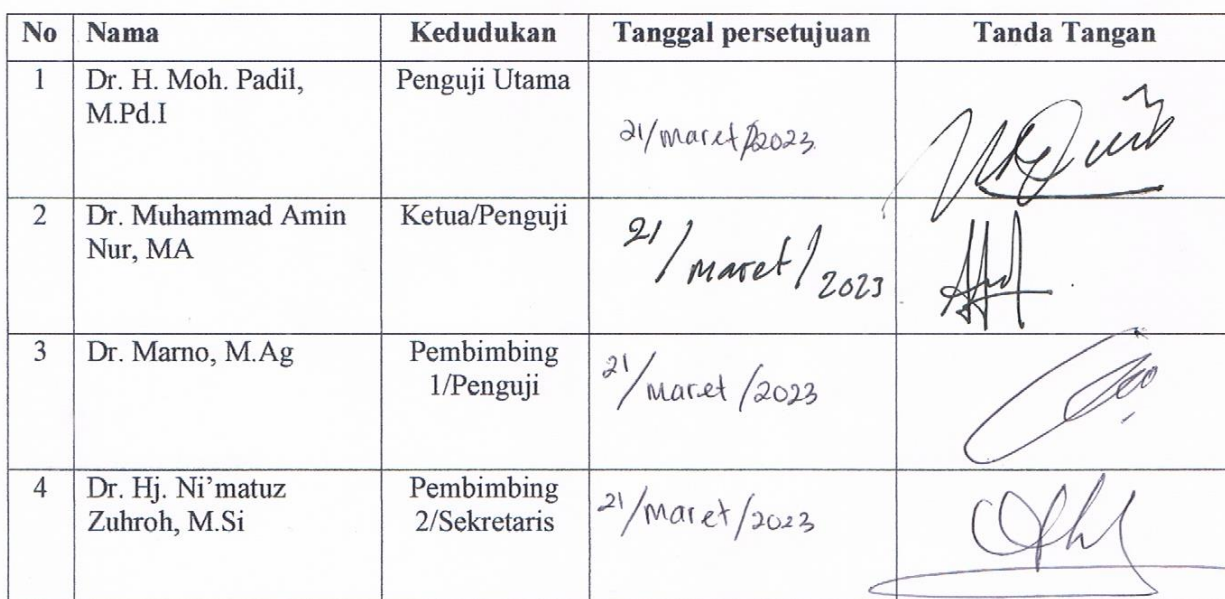 No Nama Kedudukan Tanggal persetujuan Tanda Tangan
1 Dr. H. Moh. Padil, Penguji Utama
M.Pd.I
21/maret/2023
2 Dr. Muhammad Amin Ketua/Penguji
Nur, MA
21/maret/2023
3 Dr. Marno, M.Ag Pembimbing
1/Penguji
21/maret/2023
4 Dr. Hj. Ni'matuz Pembimbing
Zuhroh, M.Si 2/Sekretaris
21/maret/2023